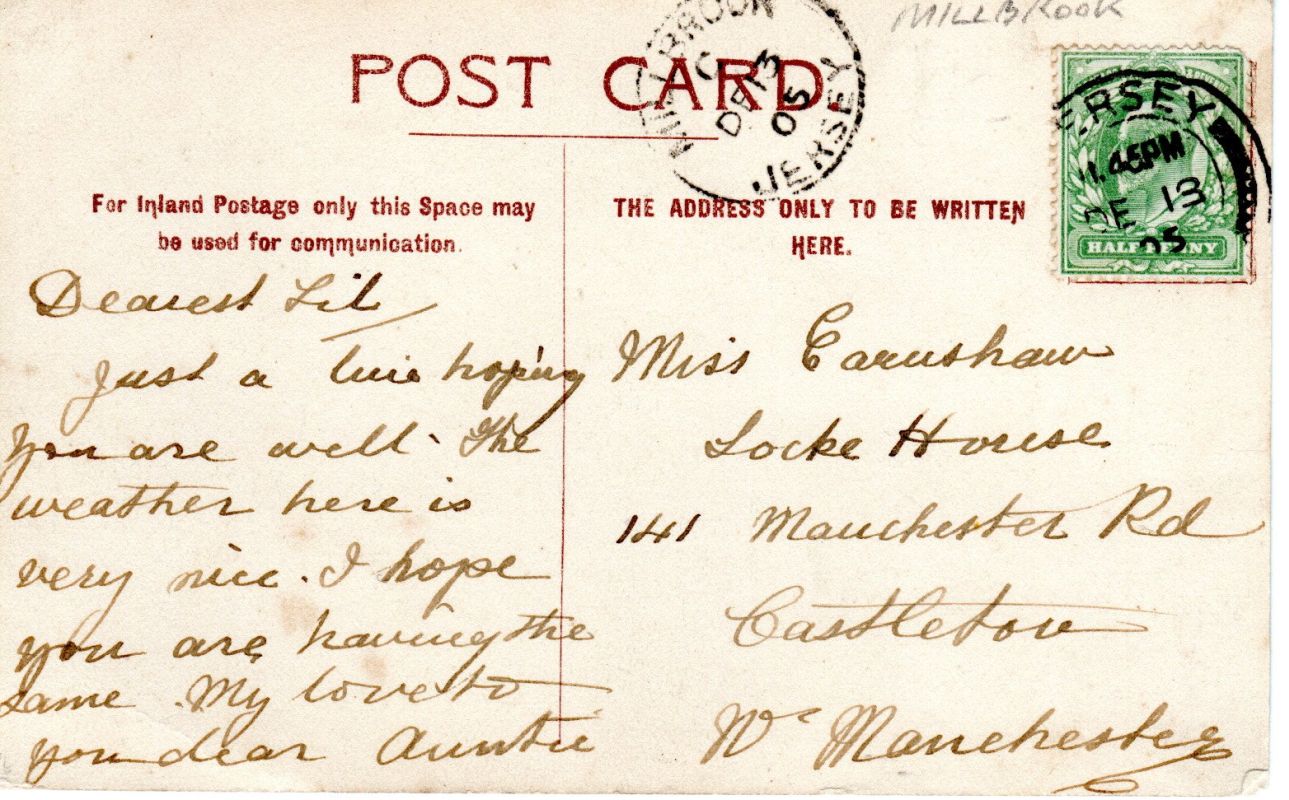 MILLBROOK
POST CARD.
MILLBROOK
C
DE 13
05
JERSEY
JERSEY
11.45PM
DE 13
05
HALFPENNY
For Inland Postage only this Space may
be used for communication.
THE ADDRESS ONLY TO BE WRITTEN
HERE.
Dearest Lil
Just a line hoping
you are well. The
weather here is
very nice. I hope
you are having the
same. My love to
you dear Auntie
Miss Earnshaw
Locke House
141 Manchester Rd
Castleton
Nr Manchester